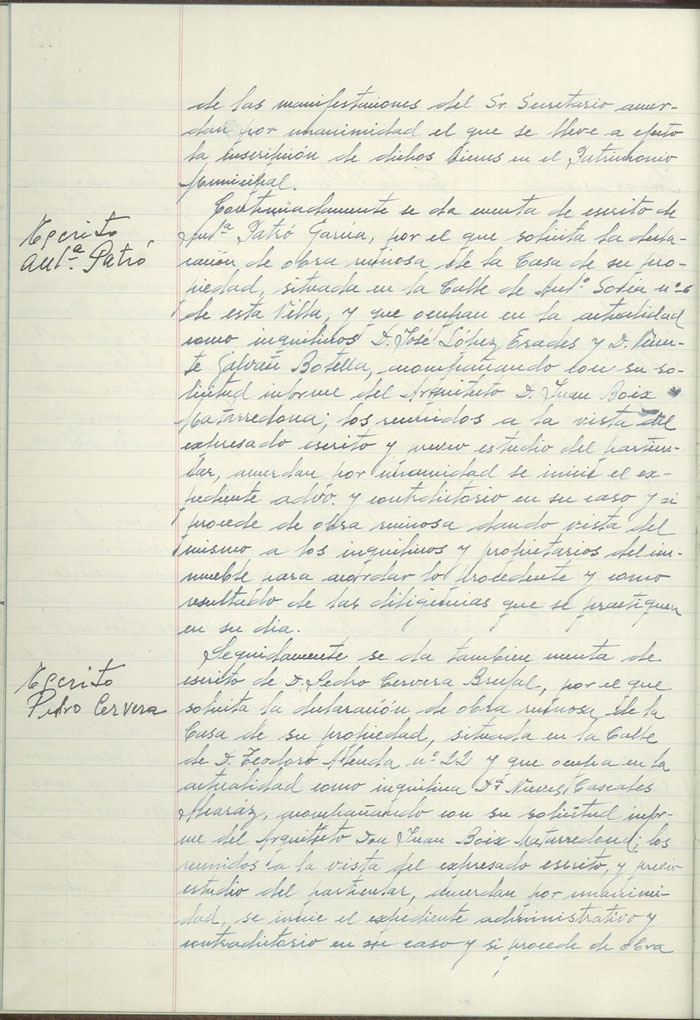 de las manifestaciones del Sr. Secretario acuer-
dan por unanimidad el que se lleve a efecto
la inscripción de dichos bienes en el Patrimonio
Municipal.
Continuadamente se da cuenta de escrito de
Escrito
Antª. Patró
Antª. Patró García, por el que solicita la decla-
ración de obra ruinosa de la Casa de su pro-
piedad, situada en la Calle de Antº. Soria nº 6
de esta Villa, y que ocupan en la actualidad
como inquilinos D. José López Erades y D. Vicen-
te Galvañ Botella, acompañando con su so-
licitud informe del Arquitecto D. Juan Boix
Matarredona; los reunidos a la vista del
expresado escrito y previo estudio del particu-
lar, acuerdan por unanimidad se inicie el ex-
pediente advo. y contradictorio en su caso y si
procede de obra ruinosa dando vista del
mismo a los inquilinos y propietarios del in-
mueble para acordar lo procedente y como
resultado de las diligencias que se practiquen
en su dia.
Seguidamente se da tambien cuenta de
Escrito
Pedro Cervera
escrito de D. Pedro Cervera Brufal, por el que
solicita la declaración de obra ruinosa de la
Casa de su propiedad, situada en la Calle
de D. Teodoro nº 22 y que ocupa en la
actualidad como inquilina Dª Nieves Cascales
acompañando con su solicitud infor-
me del Arquitecto Don Juan Boix Matarredona; los
reunidos a la vista del expresado escrito, y previo
estudio del particular, acuerdan por unanimi-
dad, se inicie el expediente administrativo y
contradictorio en su caso y si procede de obra